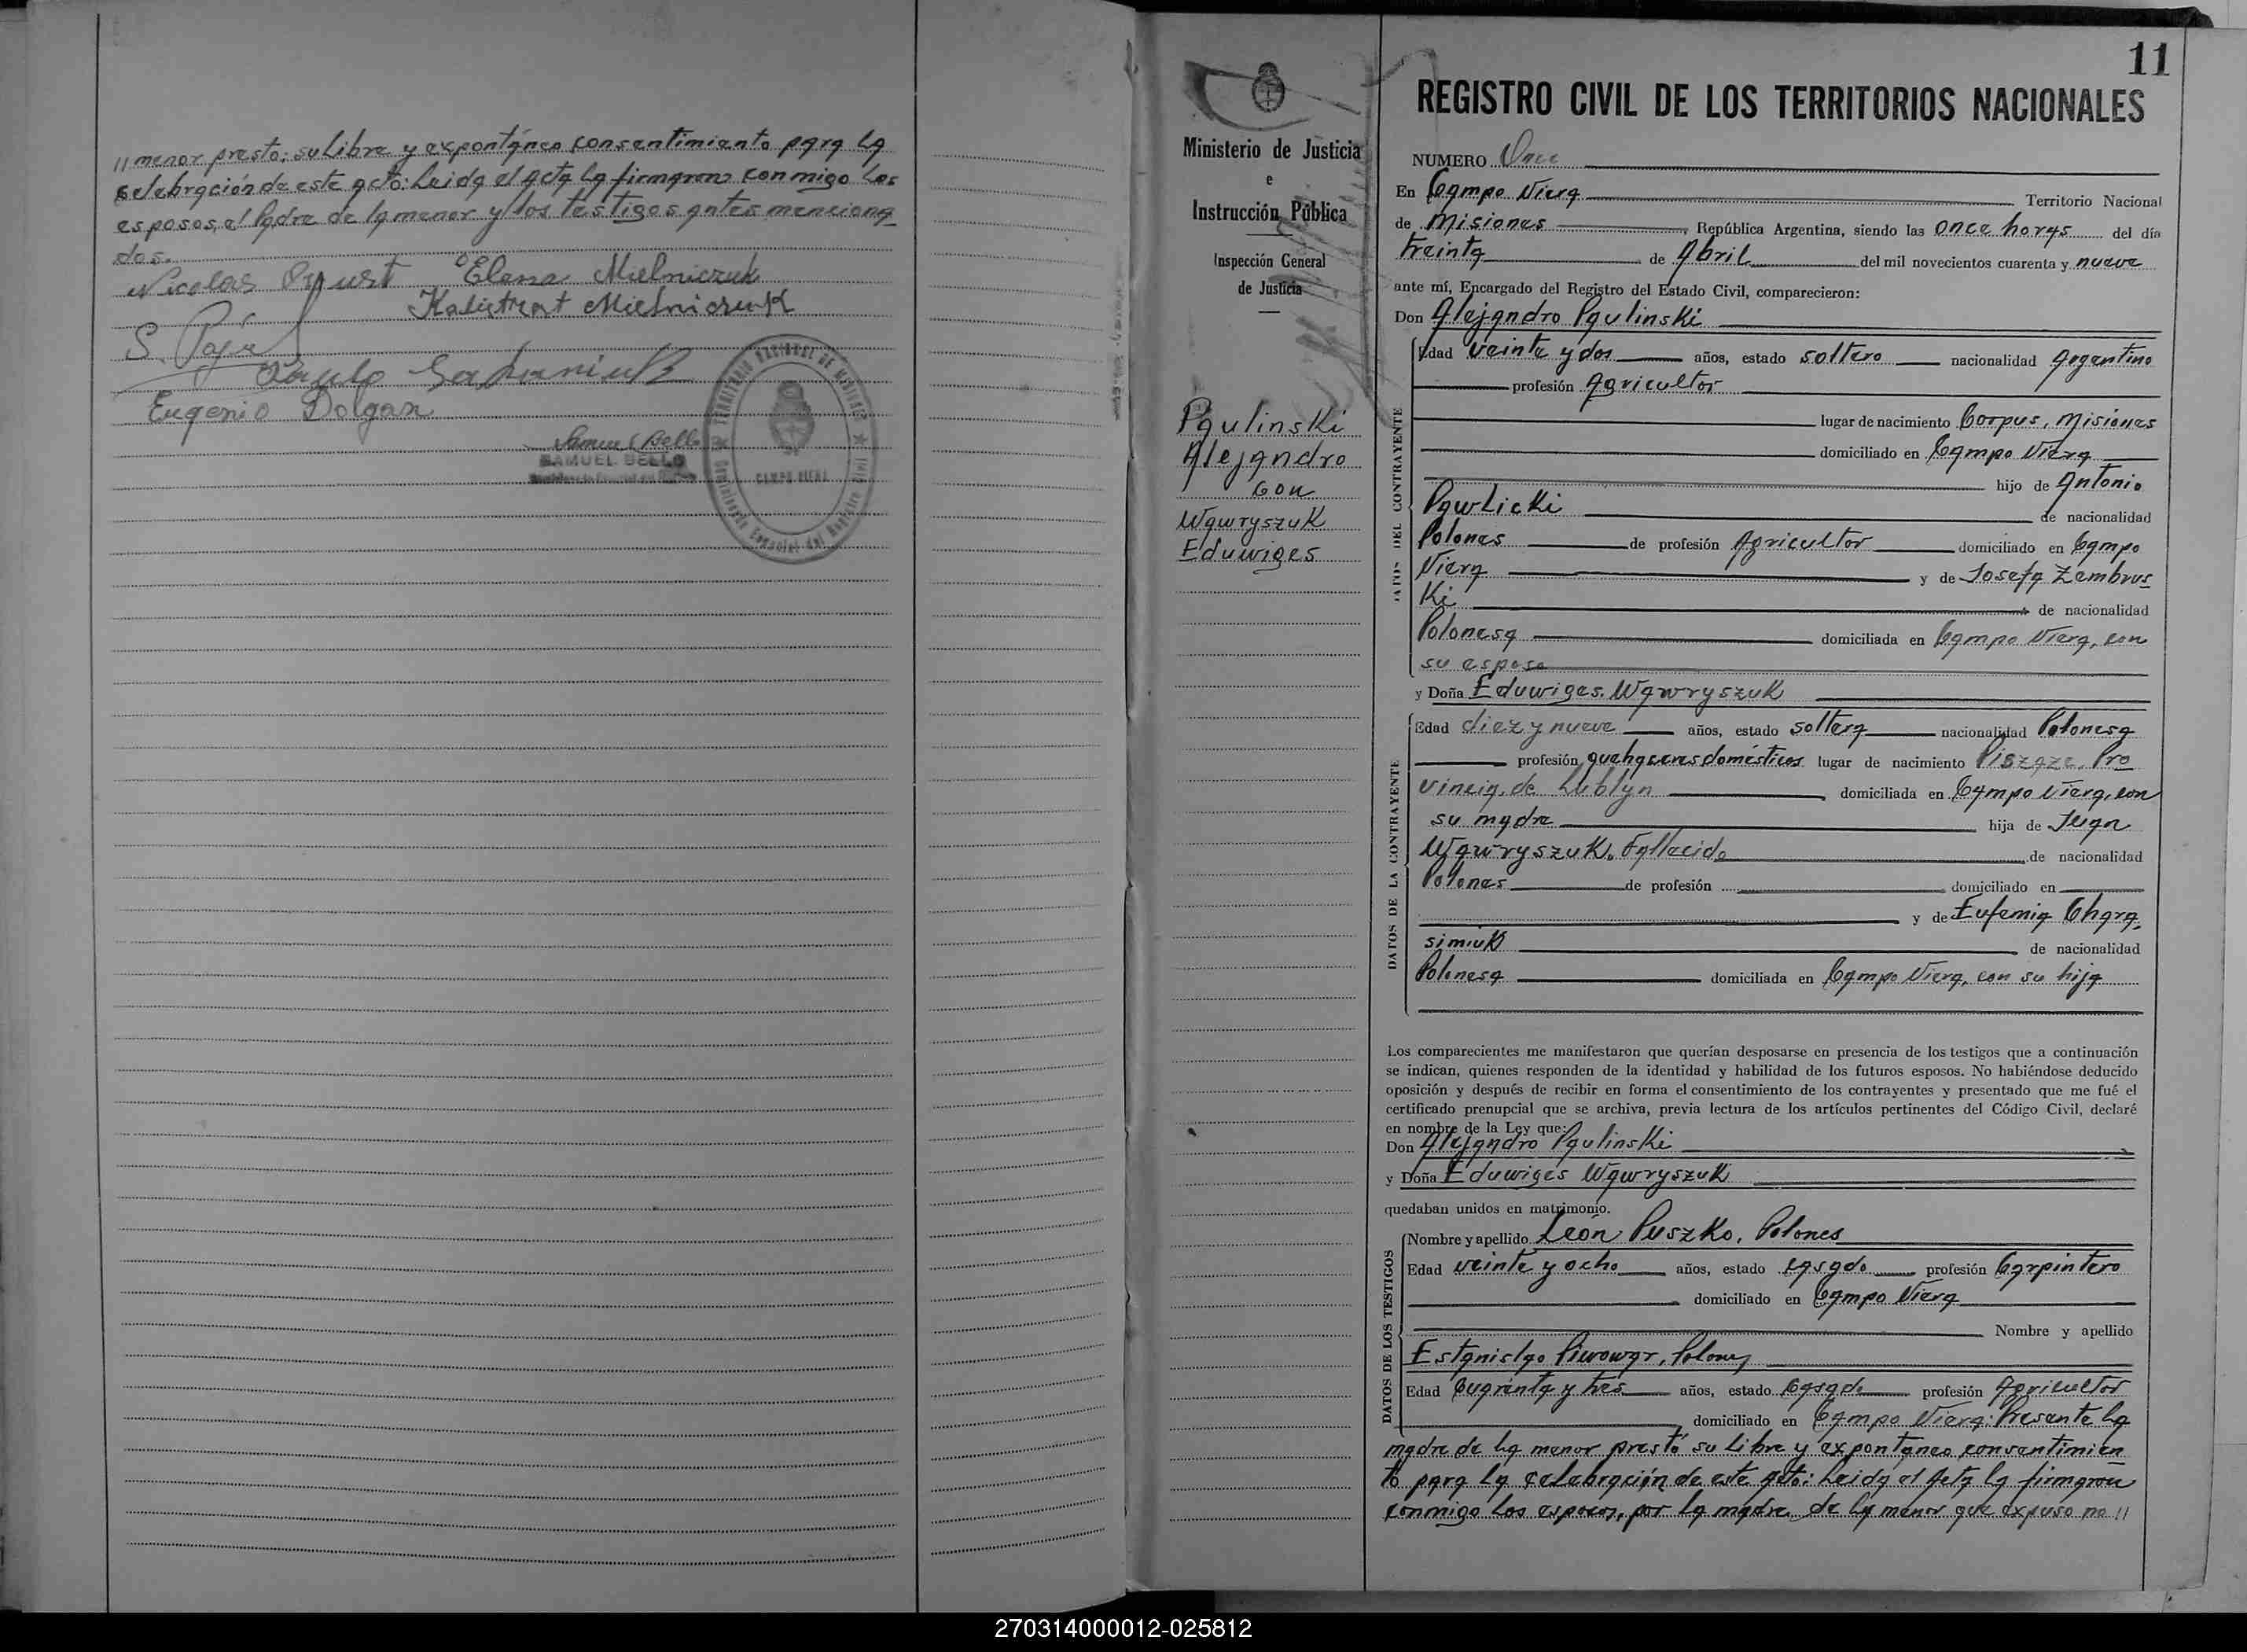 // menor prestó: su Libre y expontáneo consentimiento para la
celebración de este acto: Leida el Acta la firmaron conmigo los
esposos, el Padre de la menor y los testigos antes menciona
dos.
Nicolas Elena Mielniczuk
Kalistrat Mielniczuk
S.
Eugenio Dolgan
Samuel Bello
SAMUEL BELLO
TERRITORIO NACIONAL DE MISIONES
CAMPO VIERA
11
Ministerio de Justicia
e
Instrucción Pública
Inspección General
de Justicia
Paulinski
Alejandro
con
Wawryszuk
Eduwiges
REGISTRO CIVIL DE LOS TERRITORIOS NACIONALES
NUMERO Once
En Campo Viera Territorio Nacional
de Misiones República Argentina, siendo las once horas del día
treinta de Abril del mil novecientos cuarenta y nueve
ante mí, Encargado del Registro del Estado Civil, comparecieron:
Don Alejandro Paulinski
DATOS DEL CONTRAYENTE
Edad veinte y dos años, estado soltero nacionalidad Argentino
profesión Agricultor
lugar de nacimiento Corpus, Misiones
domiciliado en Campo Viera
hijo de Antonio
Pawlicki de nacionalidad
Polones de profesión Agricultor domiciliado en Campo
Viera y de Josefa Zembrus
ki de nacionalidad
Polonesa domiciliada en Campo Viera, con
su esposo
y Doña Eduwiges Wawryszuk
DATOS DE LA CONTRAYENTE
Edad diez y nueve años, estado soltera nacionalidad Polonesa
profesión quehaceres domésticos lugar de nacimiento Piszaze, Pro
vincia, de Lublyn domiciliada en Campo Viera, con
su madre hija de Juan
Wawryszuk, Fallecido de nacionalidad
Polones de profesión domiciliado en
y de Eufemia Chara
simiuk de nacionalidad
Polonesa domiciliada en Campo Viera, con su hija
Los comparecientes me manifestaron que querían desposarse en presencia de los testigos que a continuación
se indican, quienes responden de la identidad y habilidad de los futuros esposos. No habiéndose deducido
oposición y después de recibir en forma el consentimiento de los contrayentes y presentado que me fué el
certificado prenupcial que se archiva, previa lectura de los artículos pertinentes del Código Civil, declaré
en nombre de la Ley que:
Don Alejandro Paulinski
y Doña Eduwiges Wawryszuk
quedaban unidos en matrimonio.
DATOS DE LOS TESTIGOS
Nombre y apellido León Puszko, Polones
Edad veinte y ocho años, estado casado profesión Carpintero
domiciliado en Campo Viera
Nombre y apellido
Estanislao Piwowar, Polones
Edad Cuarenta y tres años, estado Casado profesión Agricultor
domiciliado en Campo Viera: Presente la
madre de la menor prestó su libre y expontaneo consentimien
to para la celebración de este acto: Leida el Acta la firmaron
conmigo los esposos, por la madre de la menor que expuso no //
270314000012-025812